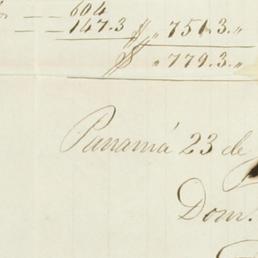 604
147.3 $ „ 751.3.„
$ „ 779.3.„
Panamá 23 de
Dom.